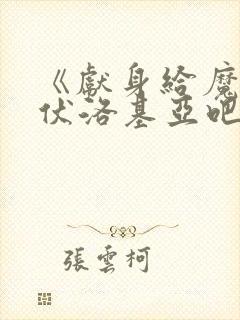 《獻身給魔
伏洛基亞吧
張雲柯